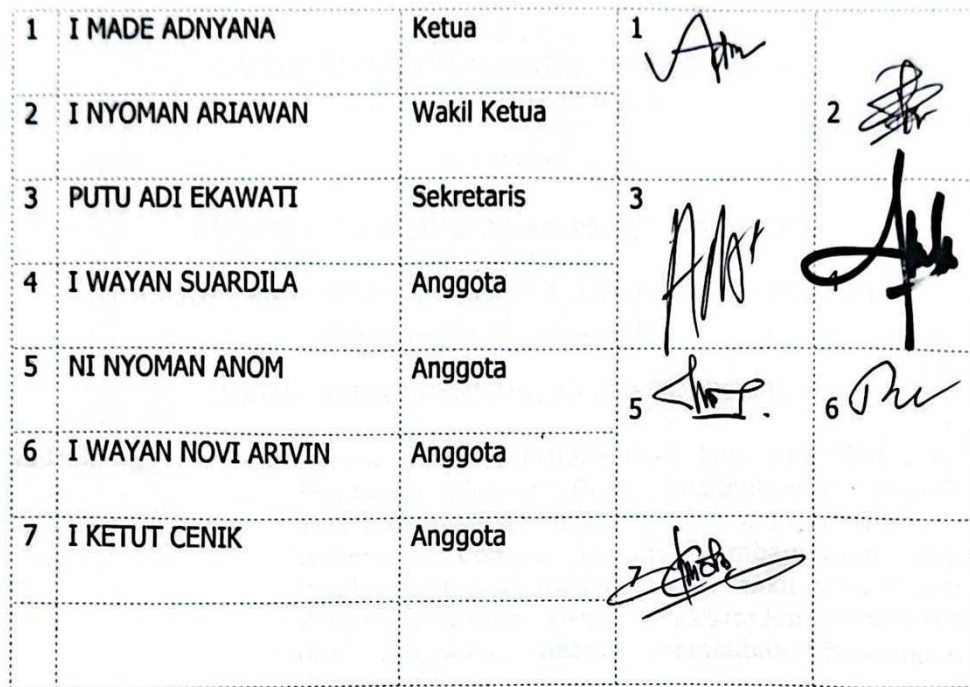 1 I MADE ADNYANA Ketua 1
2 I NYOMAN ARIAWAN Wakil Ketua 2
3 PUTU ADI EKAWATI Sekretaris 3
4 I WAYAN SUARDILA Anggota
5 NI NYOMAN ANOM Anggota 5 6
6 I WAYAN NOVI ARIVIN Anggota
7 I KETUT CENIK Anggota 7